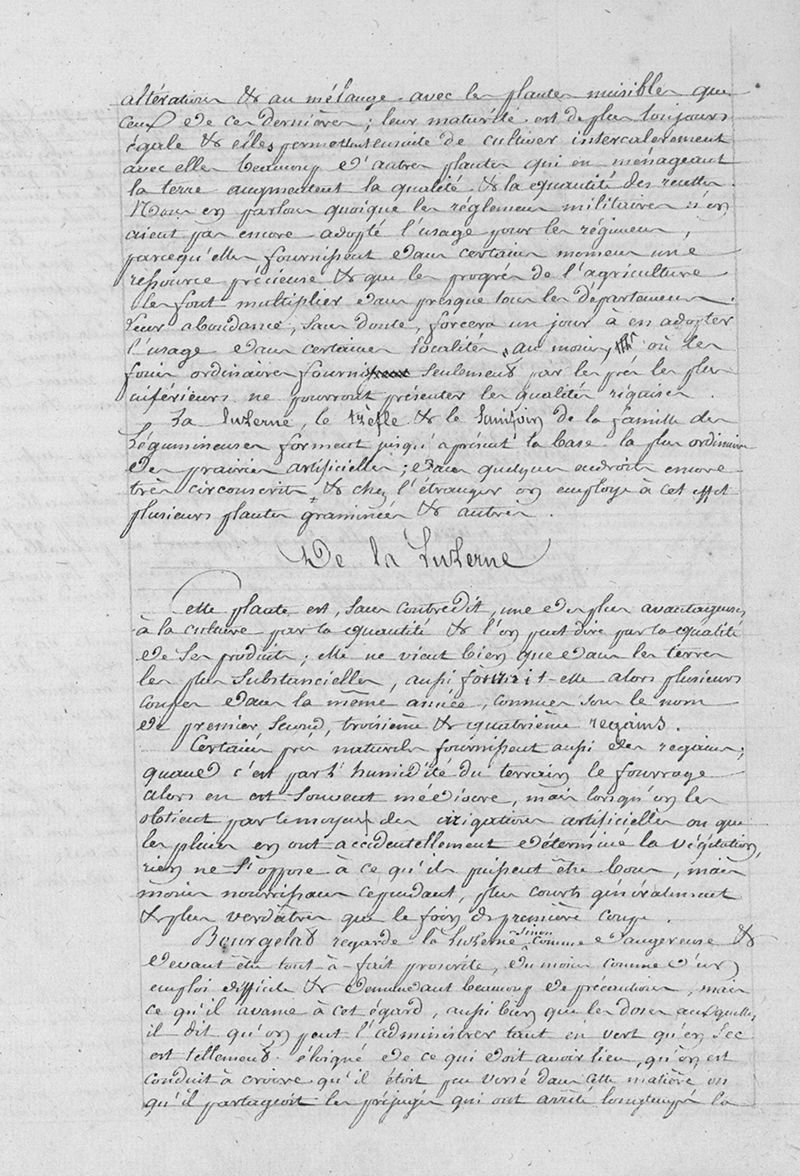 altération & au mélange avec les plantes nuisibles que
ceux de ces dernières ; leur maturité est de plus toujours
égale & elles permettent ensuite de cultiver intercalerement
avec elles beaucoup d'autres plantes qui en ménageant
la terre augmentent la qualité & la quantité des recettes.
Nous en parlons quoique les réglemens militaires n'en
aient pas encore adopté l'usage pour les régimens,
parcequ'elles fournissent dans certains momens une
ressource précieuse & que les progrès de l'agriculture
les font multiplier dans presque tous les départemens.
Leur abondance, sans doute, forcera un jour à en adopter
l'usage dans certaines localités, au moins où les
foins ordinaires fournis seulement par les prés les plus
inférieurs ne pourront présenter les qualités réquises.
La Luzerne, le trèfle & le Sainfoin de la famille des
Légumineuses forment jusqu'à présent la base la plus ordinaire
des prairies artificielles ; dans quelques endroits encore
très circonscrits & chez l'étranger on employe à cet effet
plusieurs plantes graminées & autres.
De la Luzerne
Cette plante est, sans contredit, une des plus avantageuses
à la culture par la quantité & l'on peut dire par la qualité
de ses produits ; elle ne vient bien que dans les terres
les plus substancielles, aussi fournit-elle alors plusieurs
coupes dans la même année, connues sous le nom
de premier, second, troisième & quatrième regains.
Certains prés naturels fournissent aussi des regains ;
quand c'est par l'humidité du terrain le fourrage
alors en est souvent médiocre, mais lorsqu'on les
obtient par le moyen des irrigations artificielles ou que
les pluies en ont accidentellement déterminé la végétation,
rien ne s'oppose à ce qu'ils puissent être bons, mais
moins nourrissans cependant, plus courts généralement
& plus verdâtres que le foin de première coupe.
Bourgelat regarde la Luzerne sinon comme dangereuse &
devant être tout-à-fait proscrite, du moins comme d'un
emploi difficile & demandant beaucoup de précautions, mais
ce qu'il avance à cet égard, aussi bien que les doses auxquelles
il dit qu'on peut l'administrer tant en vert qu'en sec
est tellement éloigné de ce qui doit avoir lieu, qu'on est
conduit à croire qu'il étoit peu versé dans cette matière ou
qu'il partageoit les préjugés qui ont arrêté longtemps la